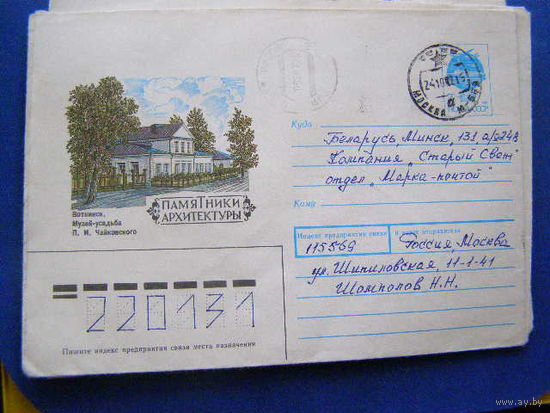 МОСКВА
СССР
Куда
Беларусь, Минск, 131, а/я 248
Компания „Старый Свет"
отдел „Марка-почтой"
Кому
ПАМЯТНИКИ
АРХИТЕКТУРЫ
Воткинск.
Музей-усадьба
П. И. Чайковского
Индекс предприятия связи и адрес отправителя
115569 Россия, Москва
ул. Шипиловская, 11-1-41
Шамполов Н.Н.
220131
Пишите индекс предприятия связи места назначения
www.ay.by